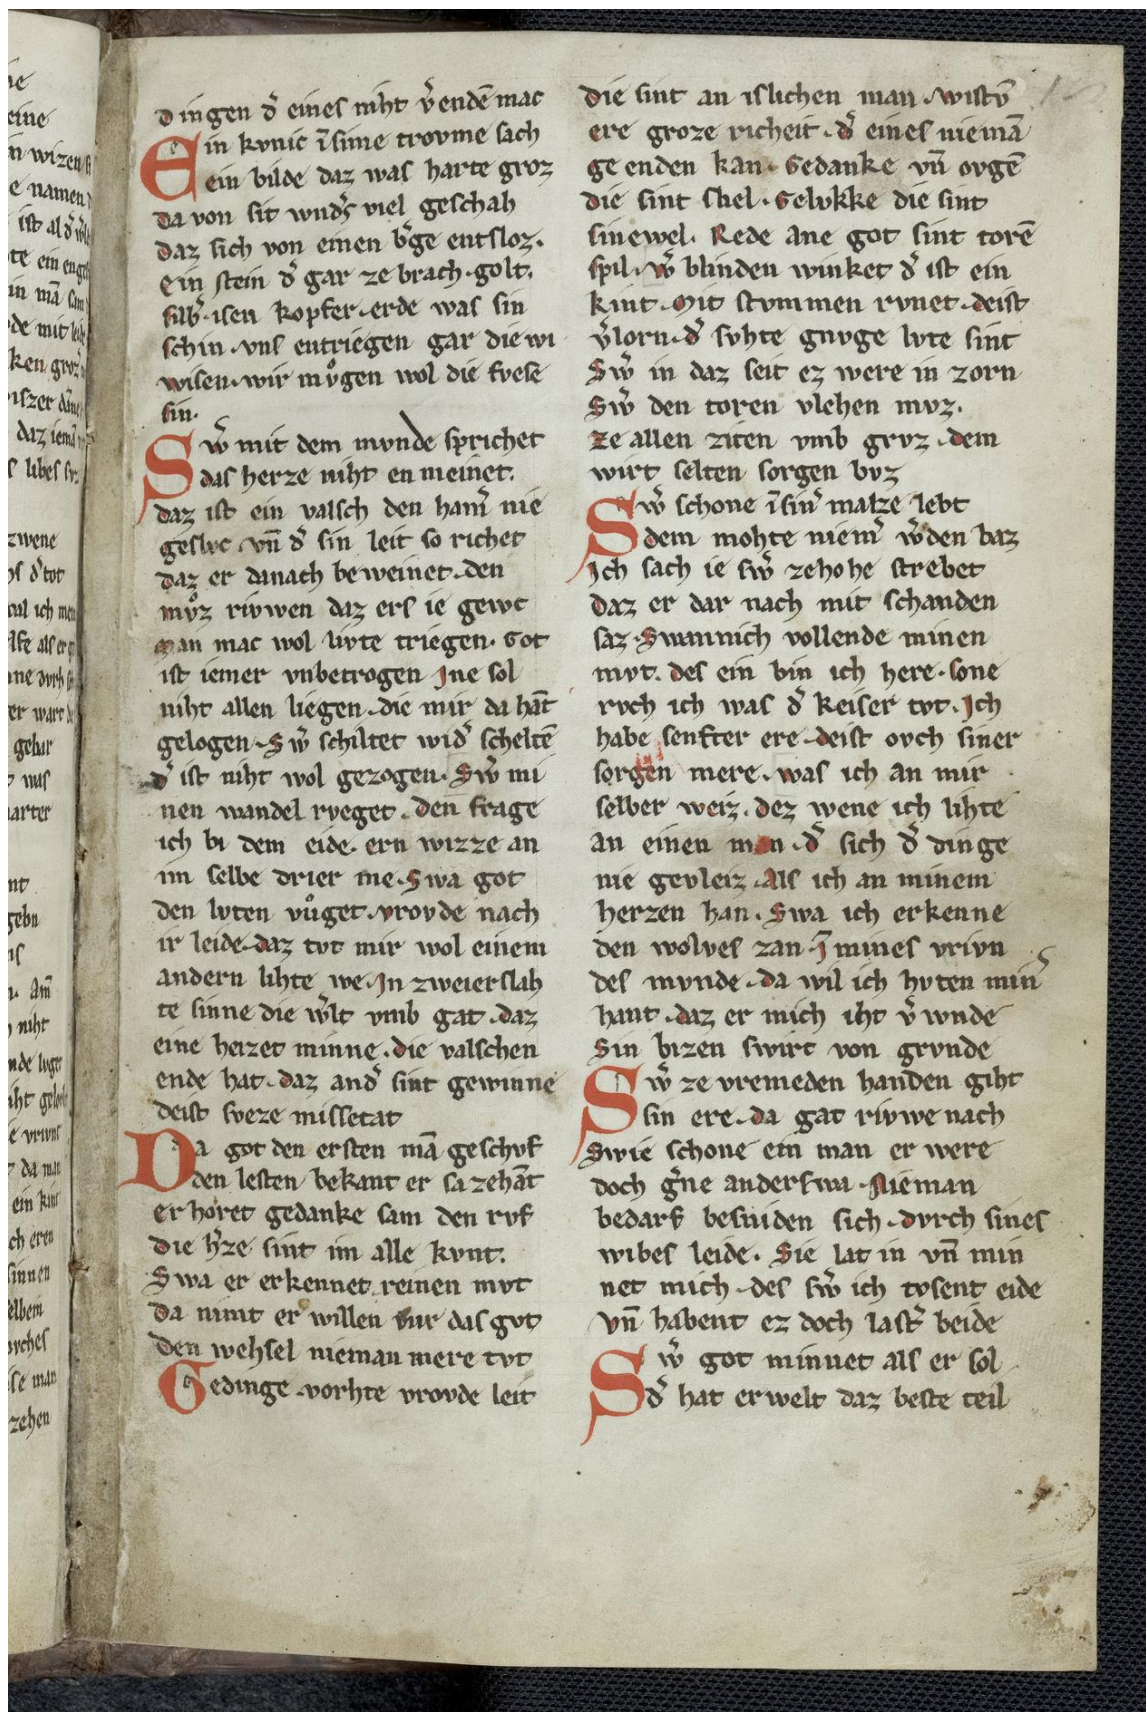 dingen d͛ eines niht v͛endē mac
Ein kvnic ī sime trovme sach
ein bilde daz was harte groz
da von sit wnd͛s viel geschah
daz sich von einen b͛ge entsloz.
ein stein d͛ gar ze brach. golt.
silb͛. isen kopfer. erde was sin
schin. vns entriegen gar die wi
wisen. wir mvͦgen wol die fvese
sin.
Sw͛ mit dem mvnde sprichet
das herze niht en meinet.
daz ist ein valsch den ham͛ nie
geslvc. vn̄ d͛ sin leit so richet
daz er danach beweinet. den
mvͦz rivwen daz ers ie gewc
Man mac wol livte triegen. Got
ist iemer vnbetrogen Jne sol
niht allen liegen. die mir da hāt
gelogen. Sw͛ schiltet wid͛ scheltē
d͛ ist niht wol gezogen. Sw͛ mi
nen wandel rveget. den frage
ich bi dem eide. ern wizze an
im selbe drier me. Swa got
den lvten vuͦget. vrovde nach
ir leide. daz tvt mir wol einem
andern lihte we. Jn zweierslah
te sinne die w͛lt vmb gat. daz
eine heizet minne. die valschen
ende hat. daz and͛ sint gewinne
deist sveze missetat
Da got den ersten mā geschvf
den lesten bekant er sa zehāt
er horet gedanke sam den rvf
die h͛ze sint im alle kvnt.
Swa er erkennet reinen mvt
da nimt er willen vur das gvt
den wehsel nieman mere tvt
Gedinge vorhte vrovde leit
die sint an islichen man. wistv̄
ere groze richeit. d͛ eines niemā
ge enden kan. Gedanke vn̄ ovgē
die sint snel. Gelvkke die sint
sinewel. Rede ane got sint torē
spil. w͛ blinden winket d͛ ist ein
kint. Mit stvmmen rvnet. deist
v͛lorn. d͛ svhte gnvge lvte sint
Sw͛ in daz seit ez were in zorn
Sw͛ den toren vlehen mvz.
ze allen ziten vmb grvz. dem
wirt selten sorgen bvz
Sw͛ schone ī sin͛ maze lebt
dem mohte niem͛ w͛den baz
Jch sach ie sw͛ zehohe strebet
daz er dar nach mit schanden
saz. Swannich vollende minen
mvt. des ein bin ich here. sone
rvch ich was d͛ keiser tvt. Jch
habe senfter ere. deist ovch siner
sorgen mere. was ich an mir
selber weiz. dez wene ich lihte
an einen man. d͛ sich d͛ dinge
nie gevleiz. Als ich an minem
herzen han. Swa ich erkenne
den wolves zan. J̄ mines vrivn
des mvnde. da wil ich hvten min͛
hant. daz er mich iht v͛wnde
Sin bizen swirt von grvnde
Sw͛ ze vremeden handen giht
sin ere. da gat rivwe nach
Swie schone ein man er were
doch g͛ne anderswa. Nieman
bedarf besniden sich. dvrch sines
wibes leide. Sie lat in vn̄ min
net mich. des sw͛ ich tvsent eide
vn̄ habent ez doch last͛ beide
Sw͛ got minnet als er sol
d͛ hat erwelt daz beste teil